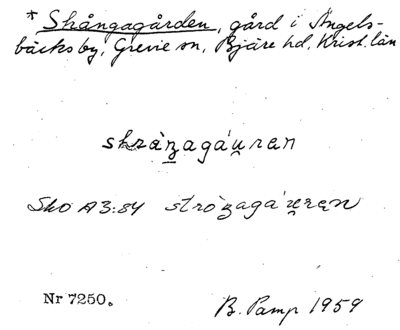 * Skångagården, gård i Ängels-
bäcks by, Grevie sn, Bjäre hd, Krist. län
skrànͅagáu̯ren
Sko A3:84 stròn̡agáu̯rən
Nr 7250.
B. Pamp 1959